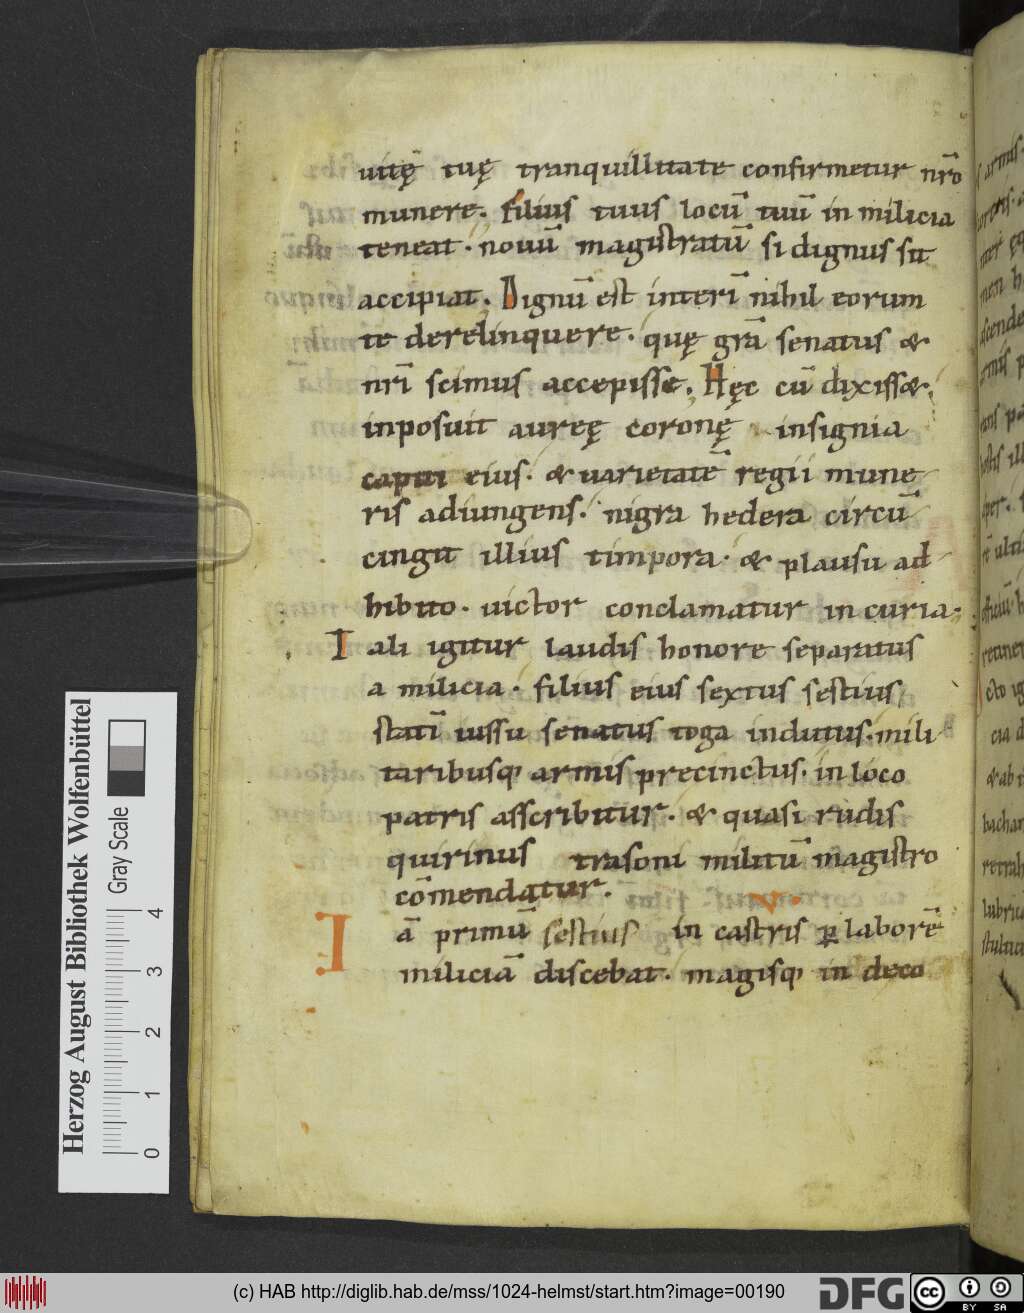 uitę tuę tranquillitate confirmetur nr̄o
munere. filius tuus locū tuū in milicia
teneat. nouū magistratū si dignus sit
accipiat. Dignū est interī nihil eorum
te derelinquere. quę grā senatus &
nrī scimus accepisse. Hęc cū dixiss&.
inposuit aureę coronę insignia
capiti eius. & uarietatē regii mune
ris adiungens. nigra hedera circū
cingit illius timpora. & plausu ad
hibito. uictor conclamatur in curia.
Tali igitur laudis honore separatus
a milicia. filius eius sextus sestius
statī iussu senatus toga indutus. mili
taribusq armis precinctus. in loco
patris asscribitur. & quasi rudis
quirinus trasoni militū magistro
cōmendatur. V.
Iā primū sestius in castris ꝑ laborē
miliciā discebat. magisq in deco
Herzog August Bibliothek Wolfenbüttel
Gray Scale
0 1 2 3 4
(c) HAB http://diglib.hab.de/mss/1024-helmst/start.htm?image=00190
DFG
cc BY SA